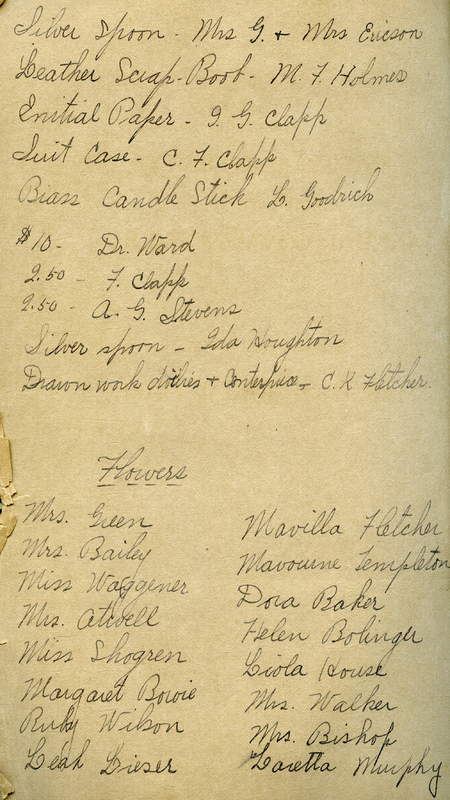 Silver Spoon - Mrs G. + Mrs Ericson
Leather Scrap-Book - M. F. Holmes
Initial Paper - I. G. Clapp
Suit Case - C. F. Clapp
Brass Candle Stick L. Goodrich
$10 - Dr. Ward
2.50 - F. Clapp
2.50 - A. G. Stevens
Silver spoon - Ida Houghton
Drawn work doilies + Centerpiece - C. K Fletcher.
Flowers
Mrs. Green
Mrs. Bailey
Miss Waggener
Mrs. Atwell
Miss Shogren
Margaret Bowie
Ruby Wilson
Leah Lieser
Mavilla Fletcher
Mavourne Templeton
Dora Baker
Helen Bolinger
Liola House
Mrs. Walker
Mrs. Bishop
Loretta Murphy